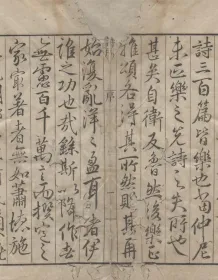 詩三百篇皆樂也當仲尼
未正樂之先詩之失所也
甚矣自衛反魯然後樂正
雅頌各得其所然則其再
始復亂洋之盈耳者伊
誰之功也哉餘斯以降作者
無慮百千萬之而撰定之
家寂著者無如蕭